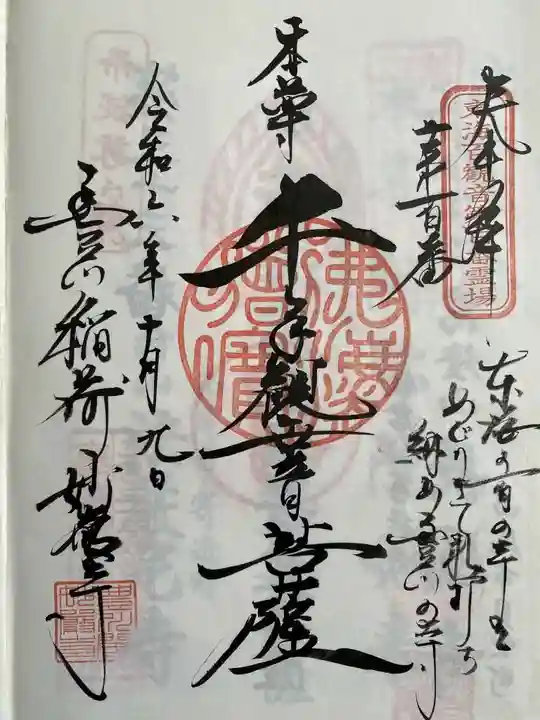 奉拝
東海百観音第百番霊場
第百番
東海の百の寺々を
めぐりきて札打ち
納む豊川の寺
本尊
千手観世音菩薩
佛法僧寶
令和六年十月九日
豊川稲荷妙厳寺